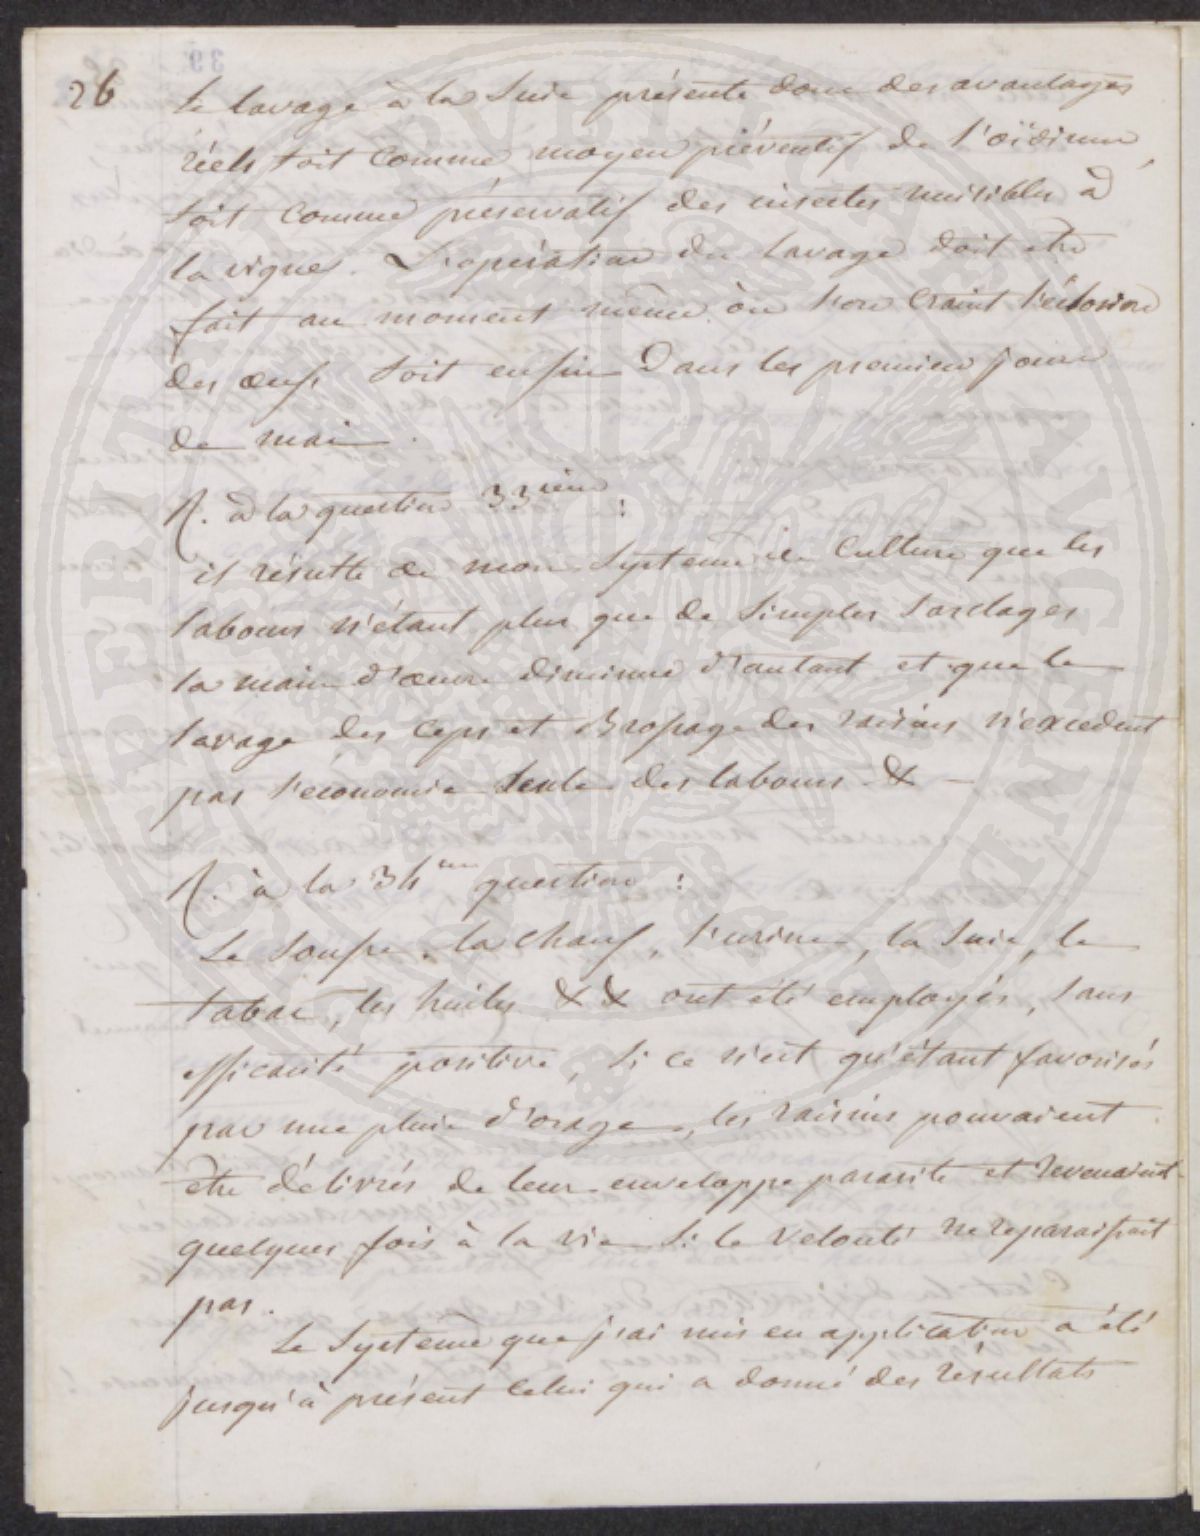 26
Le lavage à la Suie présente donc des avantages
réels soit comme moyen préventif de l'oïdium,
soit comme préservatif des insectes nuisibles à
la vigne. L'opération du lavage doit etre
fait au moment même où l'on craint l'éclosion
des œufs soit enfin dans les premiers jours
de mai.
R. à la question 33ième :
il résulte de mon Systeme de Culture que les
labours n'étant plus que de Simples Sarclages
la main d'œuvre diminue d'autant et que le
lavage des ceps et des raisins n'excedent
pas l'économie Seule des labours &
R. à la 34ème question :
Le Soufre, la Chaux, l'urine, la Suie, le
tabac, les huiles && ont été employés, Sans
efficacité positive, Si ce n'est qu'étant favorisés
par une pluie d'orage, les raisins pouvaient
être délivrés de leur enveloppe parasite et revenaient
quelques fois à la vie Si le velouté ne reparaissait
pas.
Le Systeme que j'ai mis en application a été
jusqu'à présent celui qui a donné des résultats
PERITE PVELLAE AVGENDVM
39